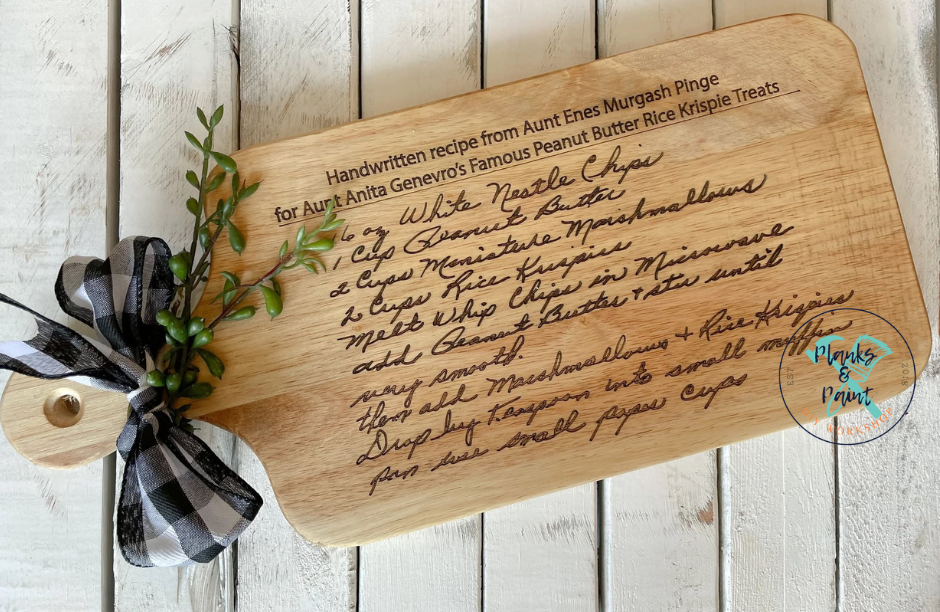 Handwritten recipe from Aunt Enes Murgash Pinge
for Aunt Anita Genevro's Famous Peanut Butter Rice Krispie Treats
6 oz White Nestle Chips
1 Cup Peanut Butter
2 Cups Miniature Marshmallows
2 Cups Rice Krispies
Melt Whip Chips in Microwave
add Peanut Butter + stir until
very smooth.
then add Marshmallows + Rice Krispies
Drop by Teaspoon into small muffin
pan use small paper cups
Planks
&
Paint
WORKSHOP
EST
2018